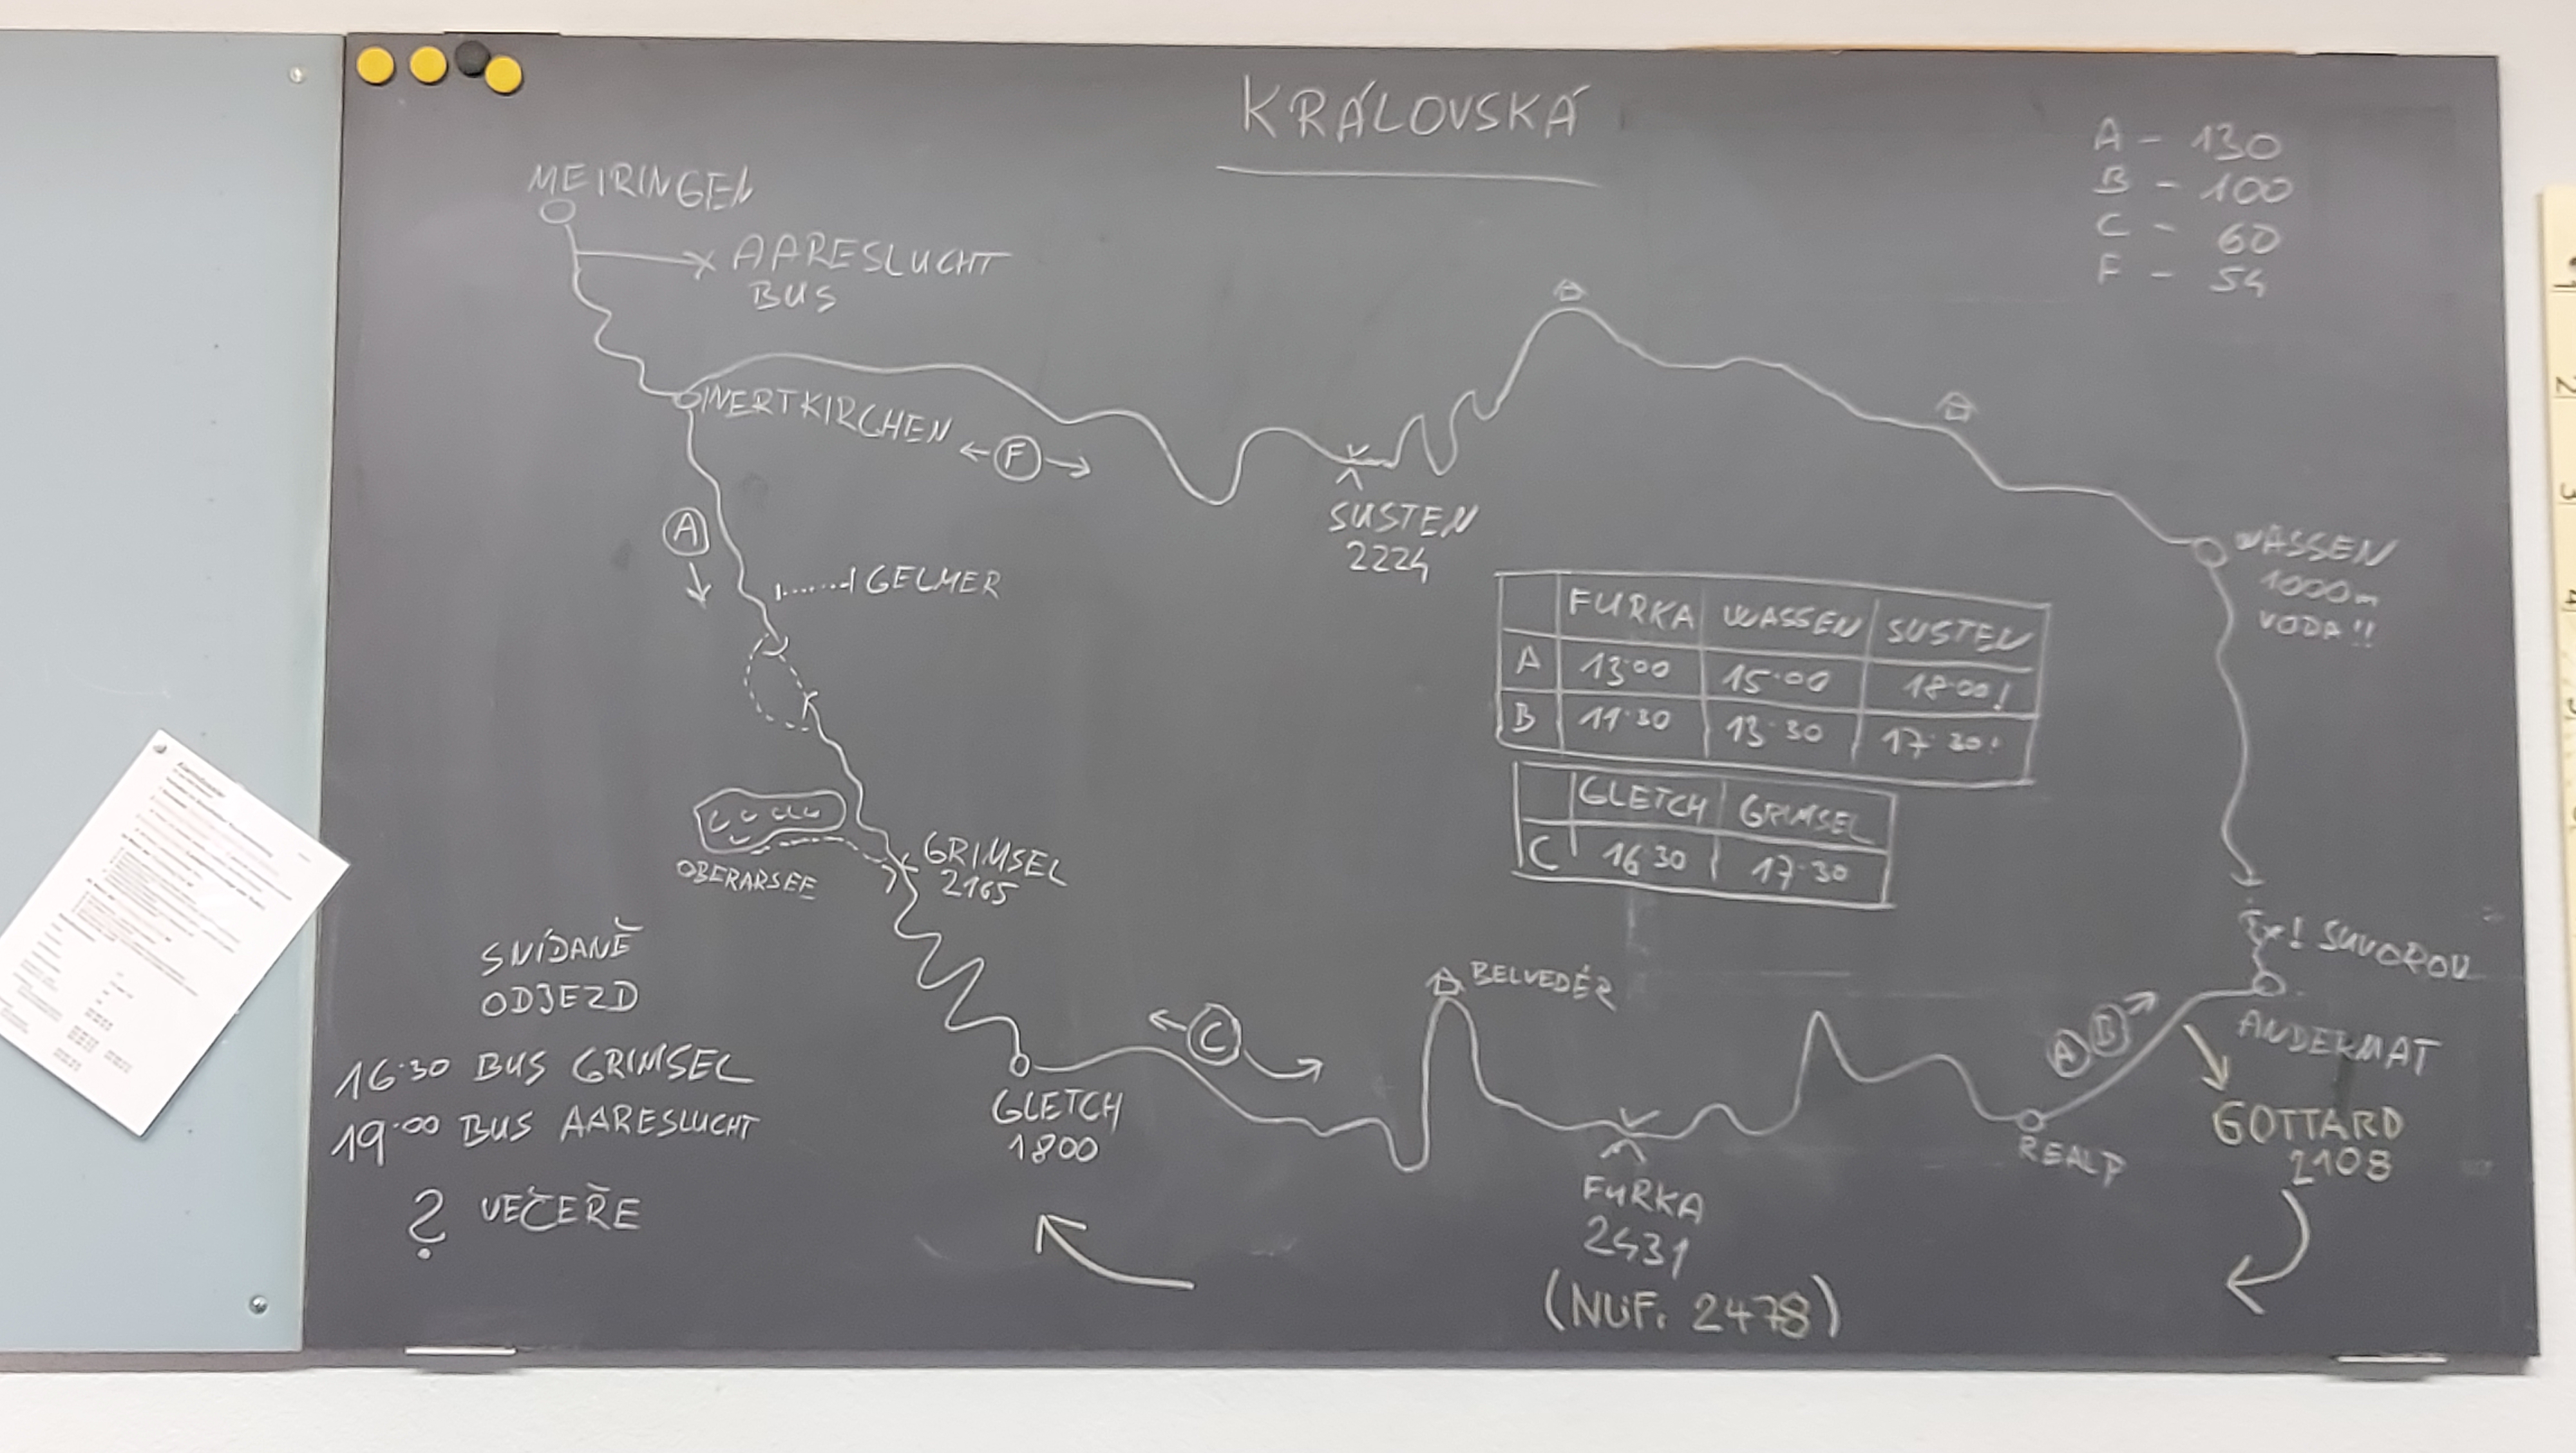 KRÁLOVSKÁ
A - 130
B - 100
C - 60
F - 54
MEIRINGEN
AARESLUCHT
BUS
INERTKIRCHEN
F
SUSTEN
2224
A
GELMER
WASSEN
1000m
VODA!!
FURKA WASSEN SUSTEN
A 13:00 15:00 18:00!
B 11:30 13:30 17:30!
GLETCH GRIMSEL
C 16:30 17:30
OBERARSEE
GRIMSEL
2165
! SUVOROV
ANDERMAT
SNÍDANĚ
ODJEZD
16:30 BUS GRIMSEL
19:00 BUS AARESLUCHT
? VEČEŘE
GLETCH
1800
C
BELVEDÉR
FURKA
2431
(NUF. 2478)
A B
REALP
GOTTARD
2108